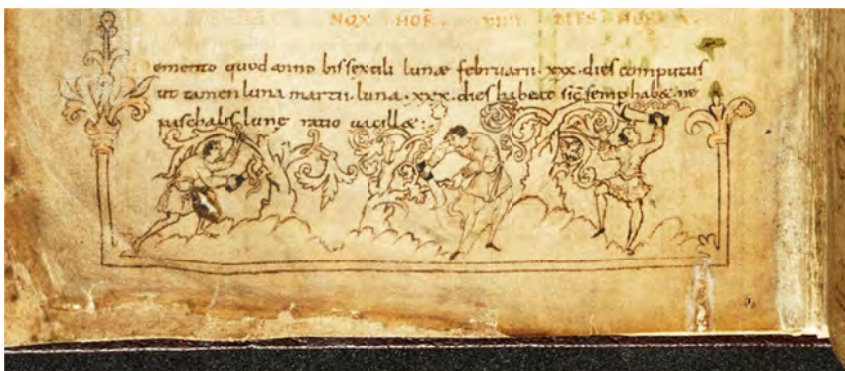 NOX HOR DIES
emento quod anno bissextili lunæ februarii · xxx · dies computus
ut tamen luna martii · luna · xxx · dies habeat sic̄ semp habæ ne
paschalis lunę ratio uacillæ :